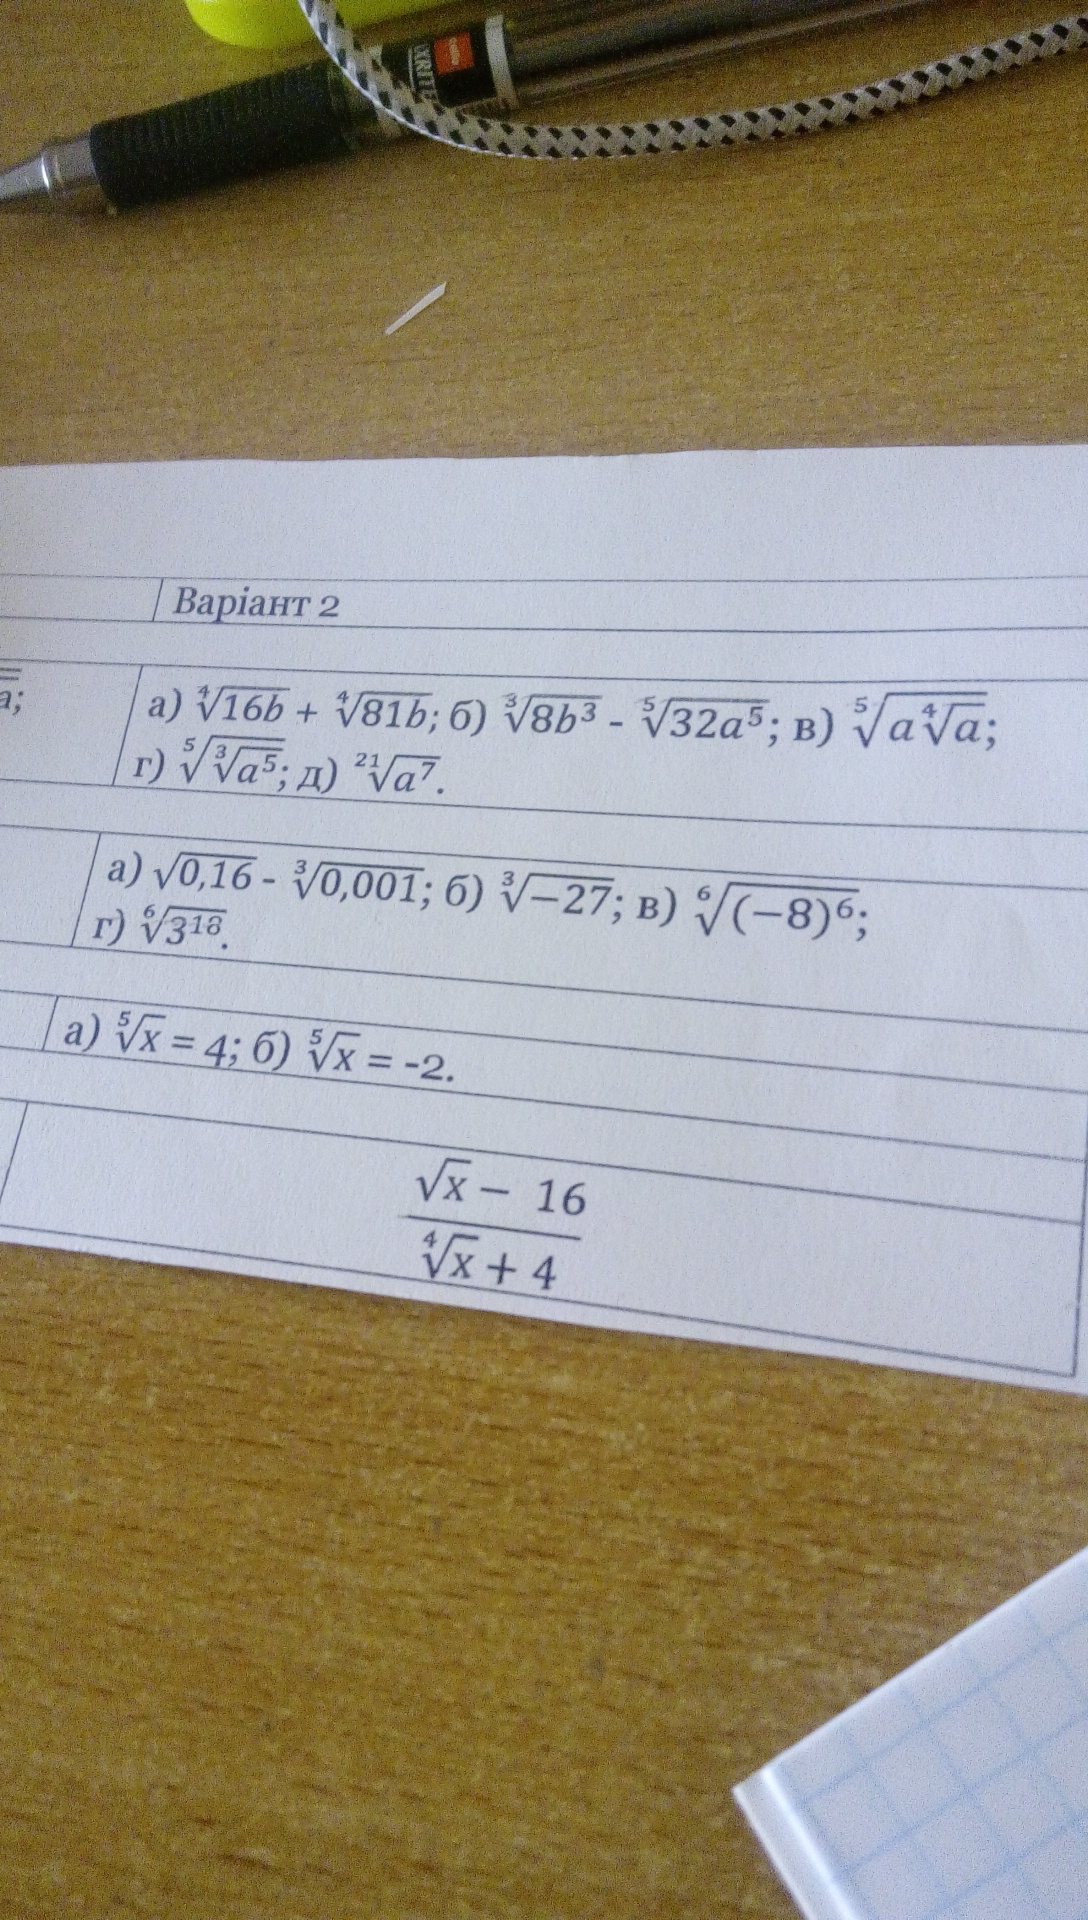 Варіант 2
a;
а) ∜16b + ∜81b; б) ∛8b³ - ⁵√32a⁵; в) ⁵√a∜a;
г) ⁵√∛a⁵; д) ²¹√a⁷.
а) √0,16 - ∛0,001; б) ∛−27; в) ⁶√(−8)⁶;
г) ⁶√3¹⁸.
а) ⁵√x = 4; б) ⁵√x = -2.
√x − 16
∜x + 4